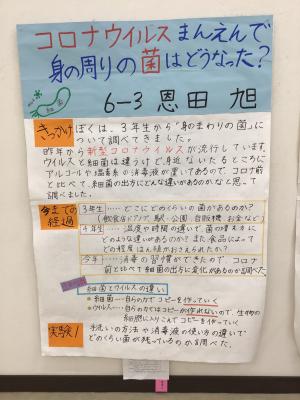 コロナウイルスまんえんで
身の周りの菌はどうなった？
細菌
6-3 恩田 旭
きっかけ
ぼくは、3年生から「身のまわりの菌」に
ついて調べてきました。
昨年から新型コロナウイルスが流行しています。
ウイルスと細菌は違うけど、身近ないたるところに
アルコールや塩素系の消毒液が置いてあるので、コロナ前
と比べて、細菌の出方にどんな違いがあるのかなと思って
調べました。
今までの
経過
3年生……どこにどのくらいの菌があるのか？
(飲食店ドアノブ、駅、公園、自販機、お金など)
4年生……温度や時間の違いで菌の増え方に
どのような違いがあるのか？また食品によって
どの程度ばい菌がおさえられたか？
今年……消毒の習慣ができたので、コロナ
前と比べて細菌の出方に変化があるのか調べた。
細菌とウイルスの違い
細菌……自らの力でコピーを作っていく
ウイルス……自らの力ではコピーが作れないので、生き物の
細胞に入りこんでコピーを作っていく
実験1
手洗いの方法や消毒液の使い方の違いで
どのくらい菌が残っているのか調べた。